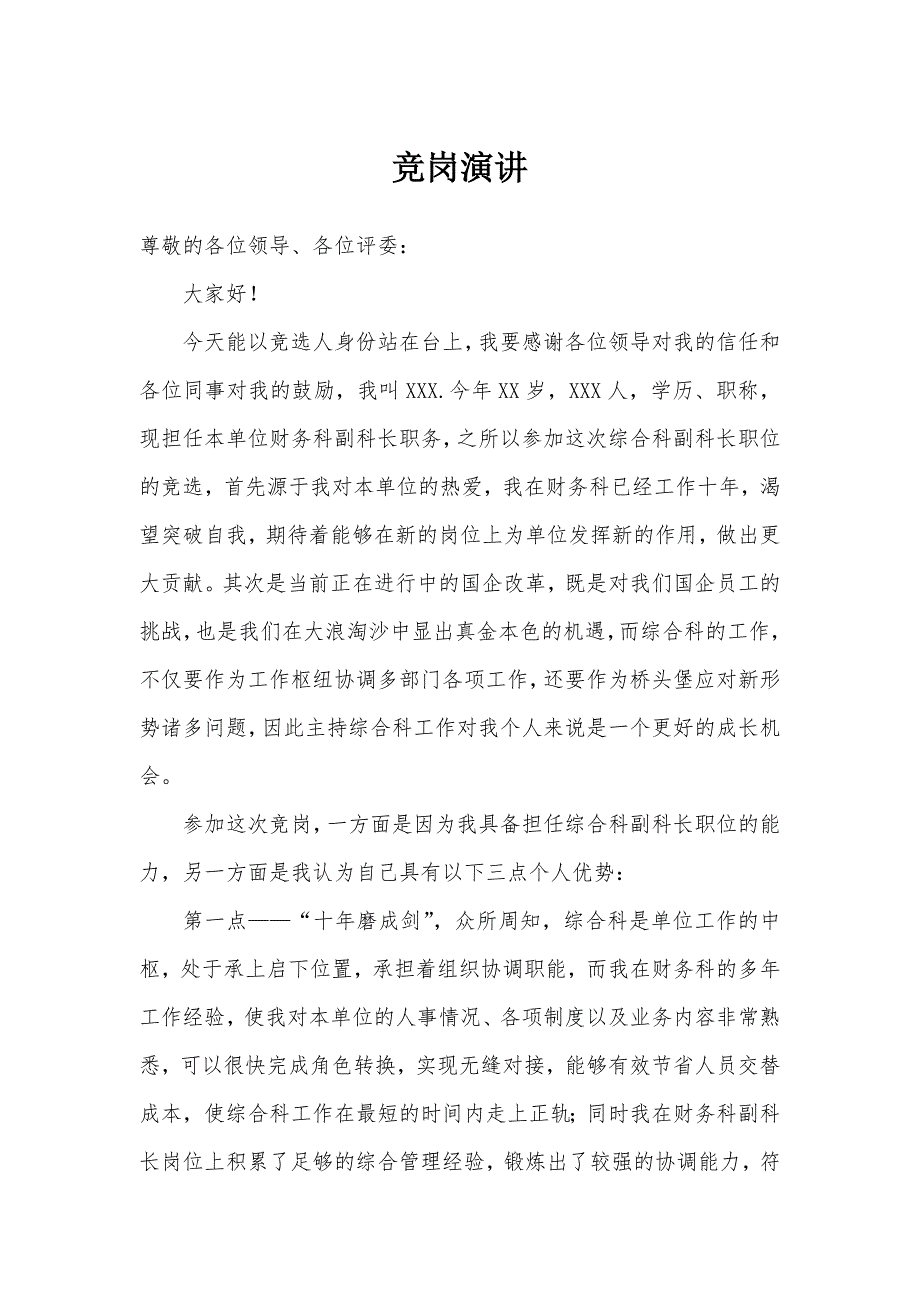 竞岗演讲
尊敬的各位领导、各位评委：
大家好！
今天能以竞选人身份站在台上，我要感谢各位领导对我的信任和
各位同事对我的鼓励，我叫 XXX.今年 XX 岁，XXX 人，学历、职称，
现担任本单位财务科副科长职务，之所以参加这次综合科副科长职位
的竞选，首先源于我对本单位的热爱，我在财务科已经工作十年，渴
望突破自我，期待着能够在新的岗位上为单位发挥新的作用，做出更
大贡献。其次是当前正在进行中的国企改革，既是对我们国企员工的
挑战，也是我们在大浪淘沙中显出真金本色的机遇，而综合科的工作，
不仅要作为工作枢纽协调多部门各项工作，还要作为桥头堡应对新形
势诸多问题，因此主持综合科工作对我个人来说是一个更好的成长机
会。
参加这次竞岗，一方面是因为我具备担任综合科副科长职位的能
力，另一方面是我认为自己具有以下三点个人优势：
第一点——“十年磨成剑”，众所周知，综合科是单位工作的中
枢，处于承上启下位置，承担着组织协调职能，而我在财务科的多年
工作经验，使我对本单位的人事情况、各项制度以及业务内容非常熟
悉，可以很快完成角色转换，实现无缝对接，能够有效节省人员交替
成本，使综合科工作在最短的时间内走上正轨；同时我在财务科副科
长岗位上积累了足够的综合管理经验，锻炼出了较强的协调能力，符